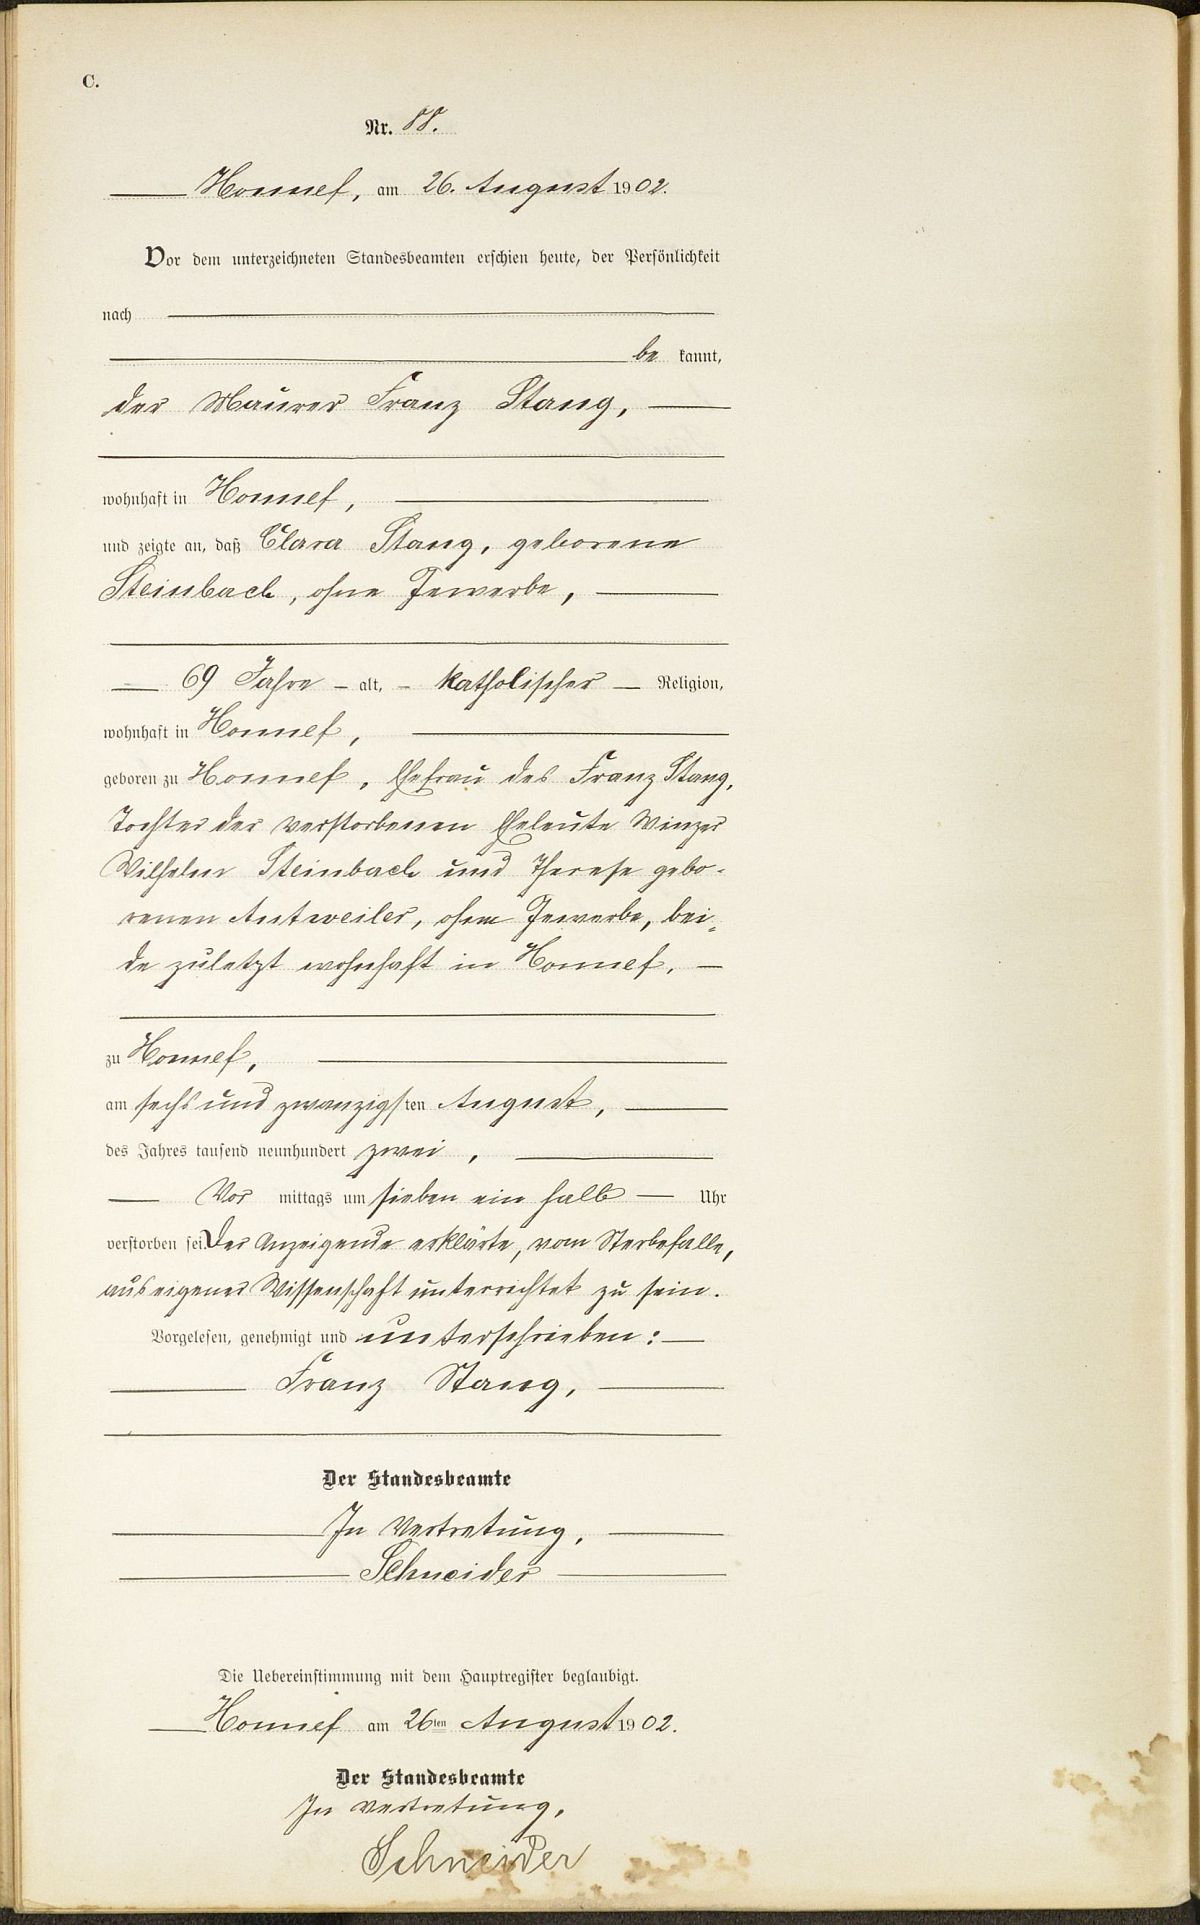 C.
Nr. 88.
Honnef, am 26. August 1902.
Vor dem unterzeichneten Standesbeamten erschien heute, der Persönlichkeit
nach
be kannt,
der Maurer Franz Stang,
wohnhaft in Honnef,
und zeigte an, daß Clara Stang, geborene
Steinbach, ohne Gewerbe,
69 Jahre – alt, – katholischer – Religion,
wohnhaft in Honnef,
geboren zu Honnef, Ehefrau des Franz Stang,
Tochter der verstorbenen Eheleute Winzer
Wilhelm Steinbach und Therese gebo-
renen Antweiler, ohne Gewerbe, bei-
de zuletzt wohnhaft in Honnef,
zu Honnef,
am sechs und zwanzigsten August,
des Jahres tausend neunhundert zwei,
Vor mittags um sieben ein halb Uhr
verstorben sei. Der Anzeigende erklärte, vom Sterbefalle,
aus eigener Wissenschaft unterrichtet zu sein.
Vorgelesen, genehmigt und unterschrieben:
Franz Stang,
Der Standesbeamte
In Vertretung,
Schneider
Die Uebereinstimmung mit dem Hauptregister beglaubigt.
Honnef am 26ten August 1902.
Der Standesbeamte
In Vertretung,
Schneider